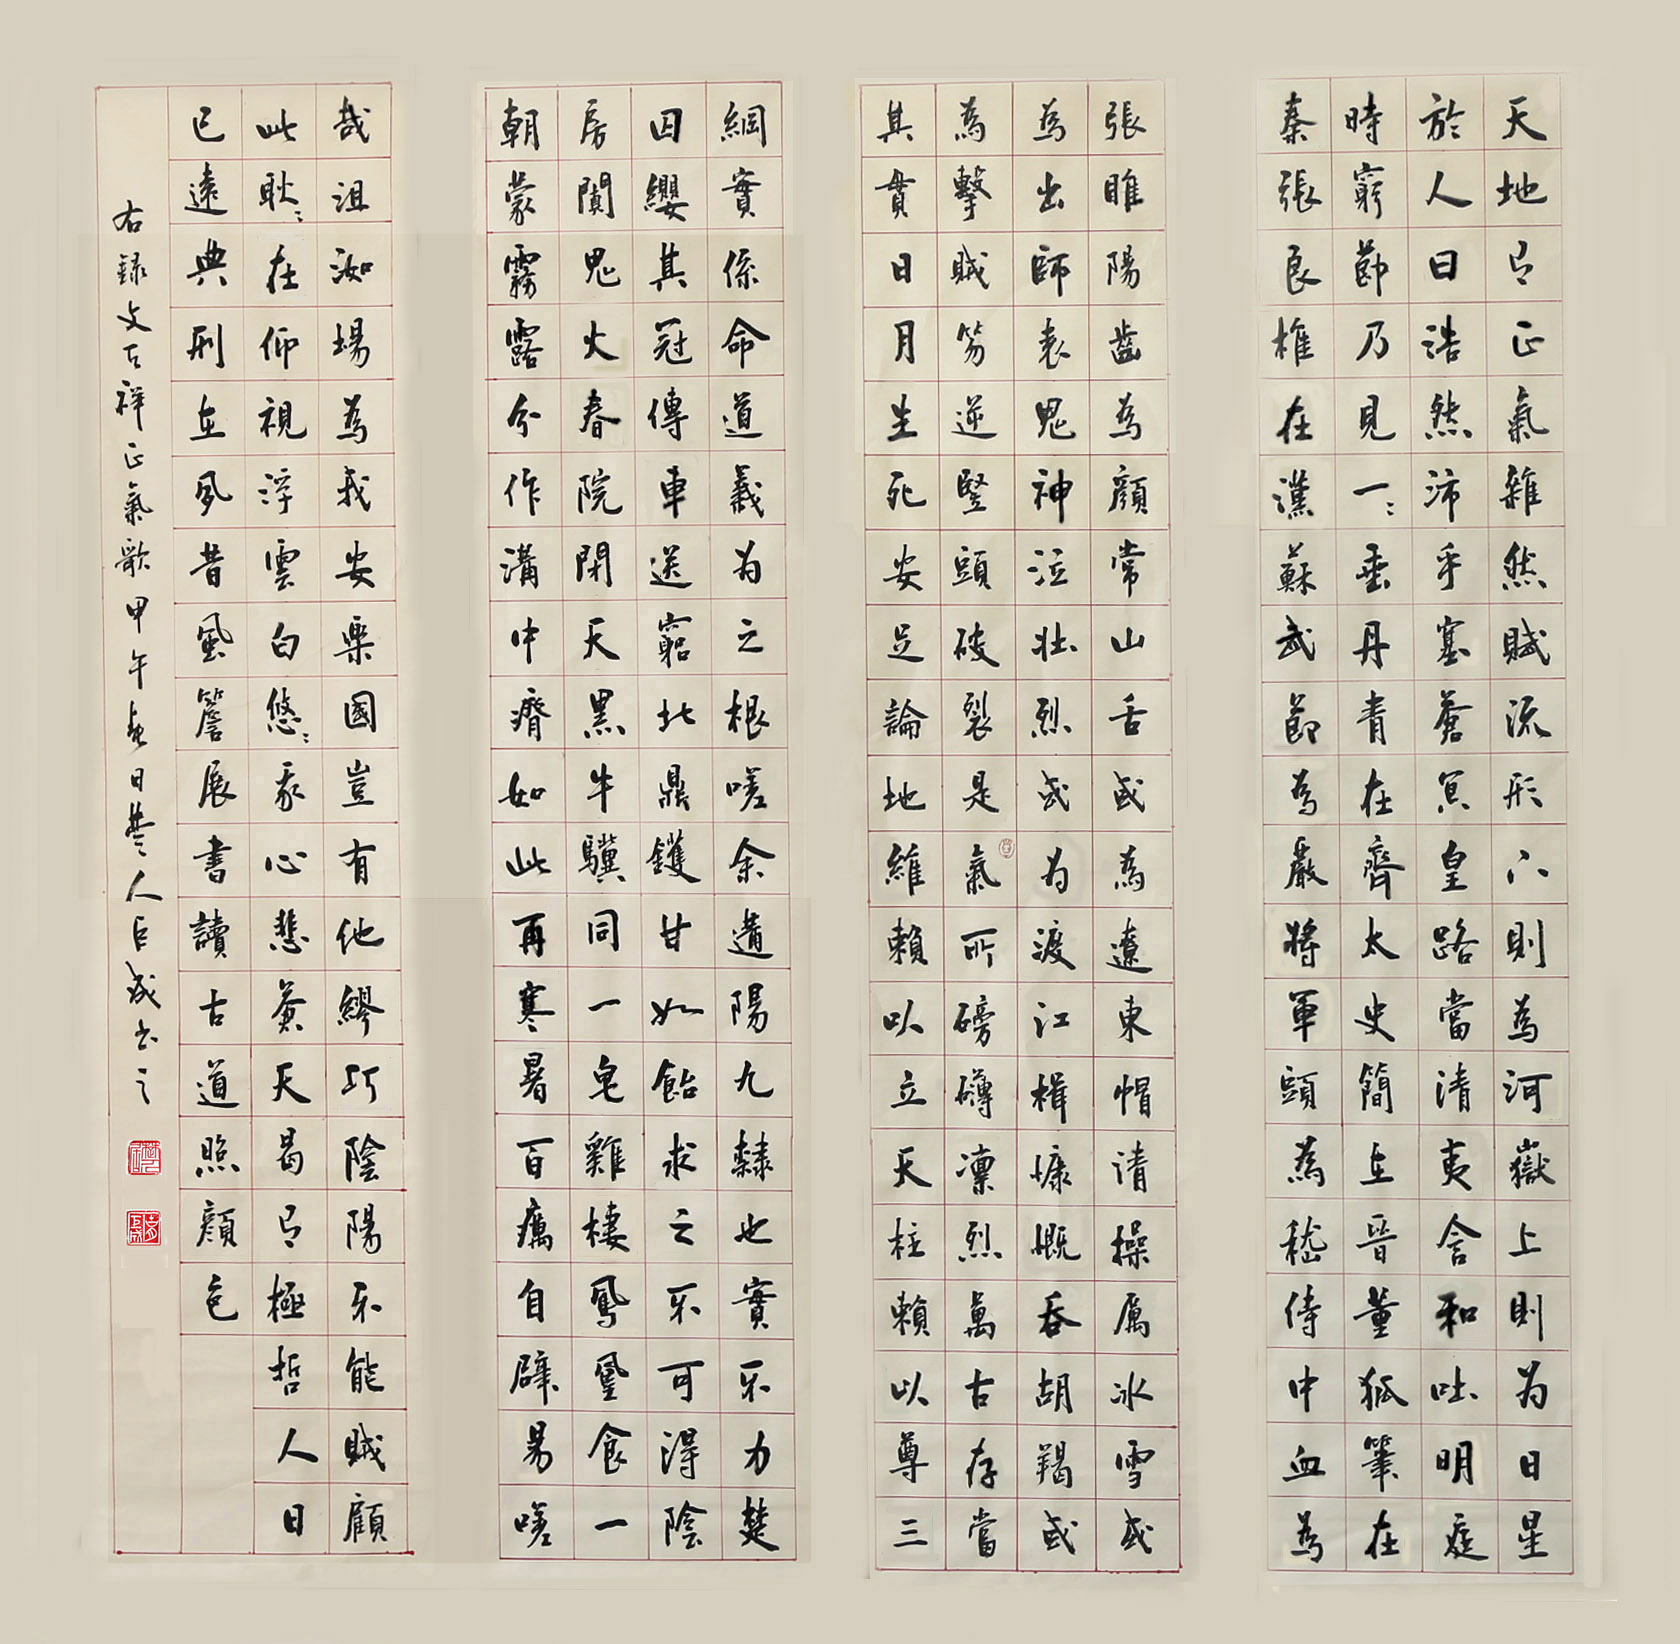 天地有正氣雜然賦流形下則為河嶽上則为日星
於人曰浩然沛乎塞蒼冥皇路當清夷含和吐明庭
時窮節乃見一々垂丹青在齊太史簡在晉董狐筆在
秦張良椎在漢蘇武節為嚴將軍頭為嵇侍中血為
張睢陽齒為顏常山舌或為遼東帽清操厲冰雪或
為出師表鬼神泣壯烈或为渡江楫慷慨吞胡羯或
為擊賊笏逆豎頭破裂是氣所磅礴凜烈萬古存當
其貫日月生死安足論地維賴以立天柱賴以尊三
綱實係命道義为之根嗟余遘陽九隸也實不力楚
囚纓其冠傳車送窮北鼎鑊甘如飴求之不可得陰
房闃鬼火春院閉天黑牛驥同一皂雞棲鳳凰食一
朝蒙霧露分作溝中瘠如此再寒暑百癘自辟易嗟
哉沮洳場為我安樂國豈有他繆巧陰陽不能賊顧
此耿々在仰視浮雲白悠々我心悲蒼天曷有極哲人日
已遠典刑在夙昔風簷展書讀古道照顏色
右錄文天祥正氣歌甲午春日楚人成书之